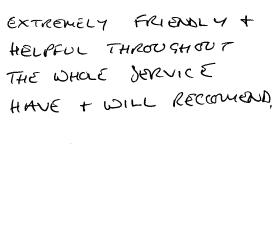 EXTREMELY FRIENDLY +
HELPFUL THROUGHOUT
THE WHOLE SERVICE
HAVE + WILL RECCOMEND.